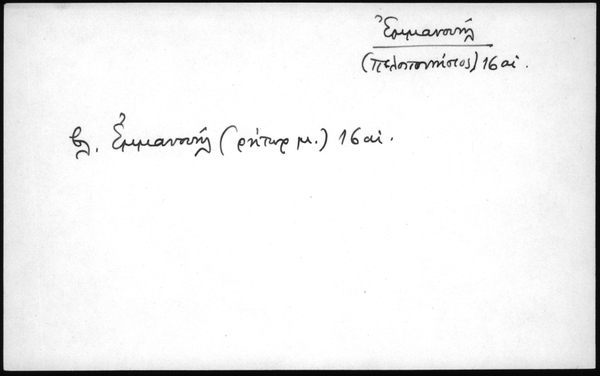 Ἐμμανουήλ
(Πελοποννήσιος) 16 αἰ.
βλ. Ἐμμανουήλ (ρήτωρ μ.) 16 αἰ.